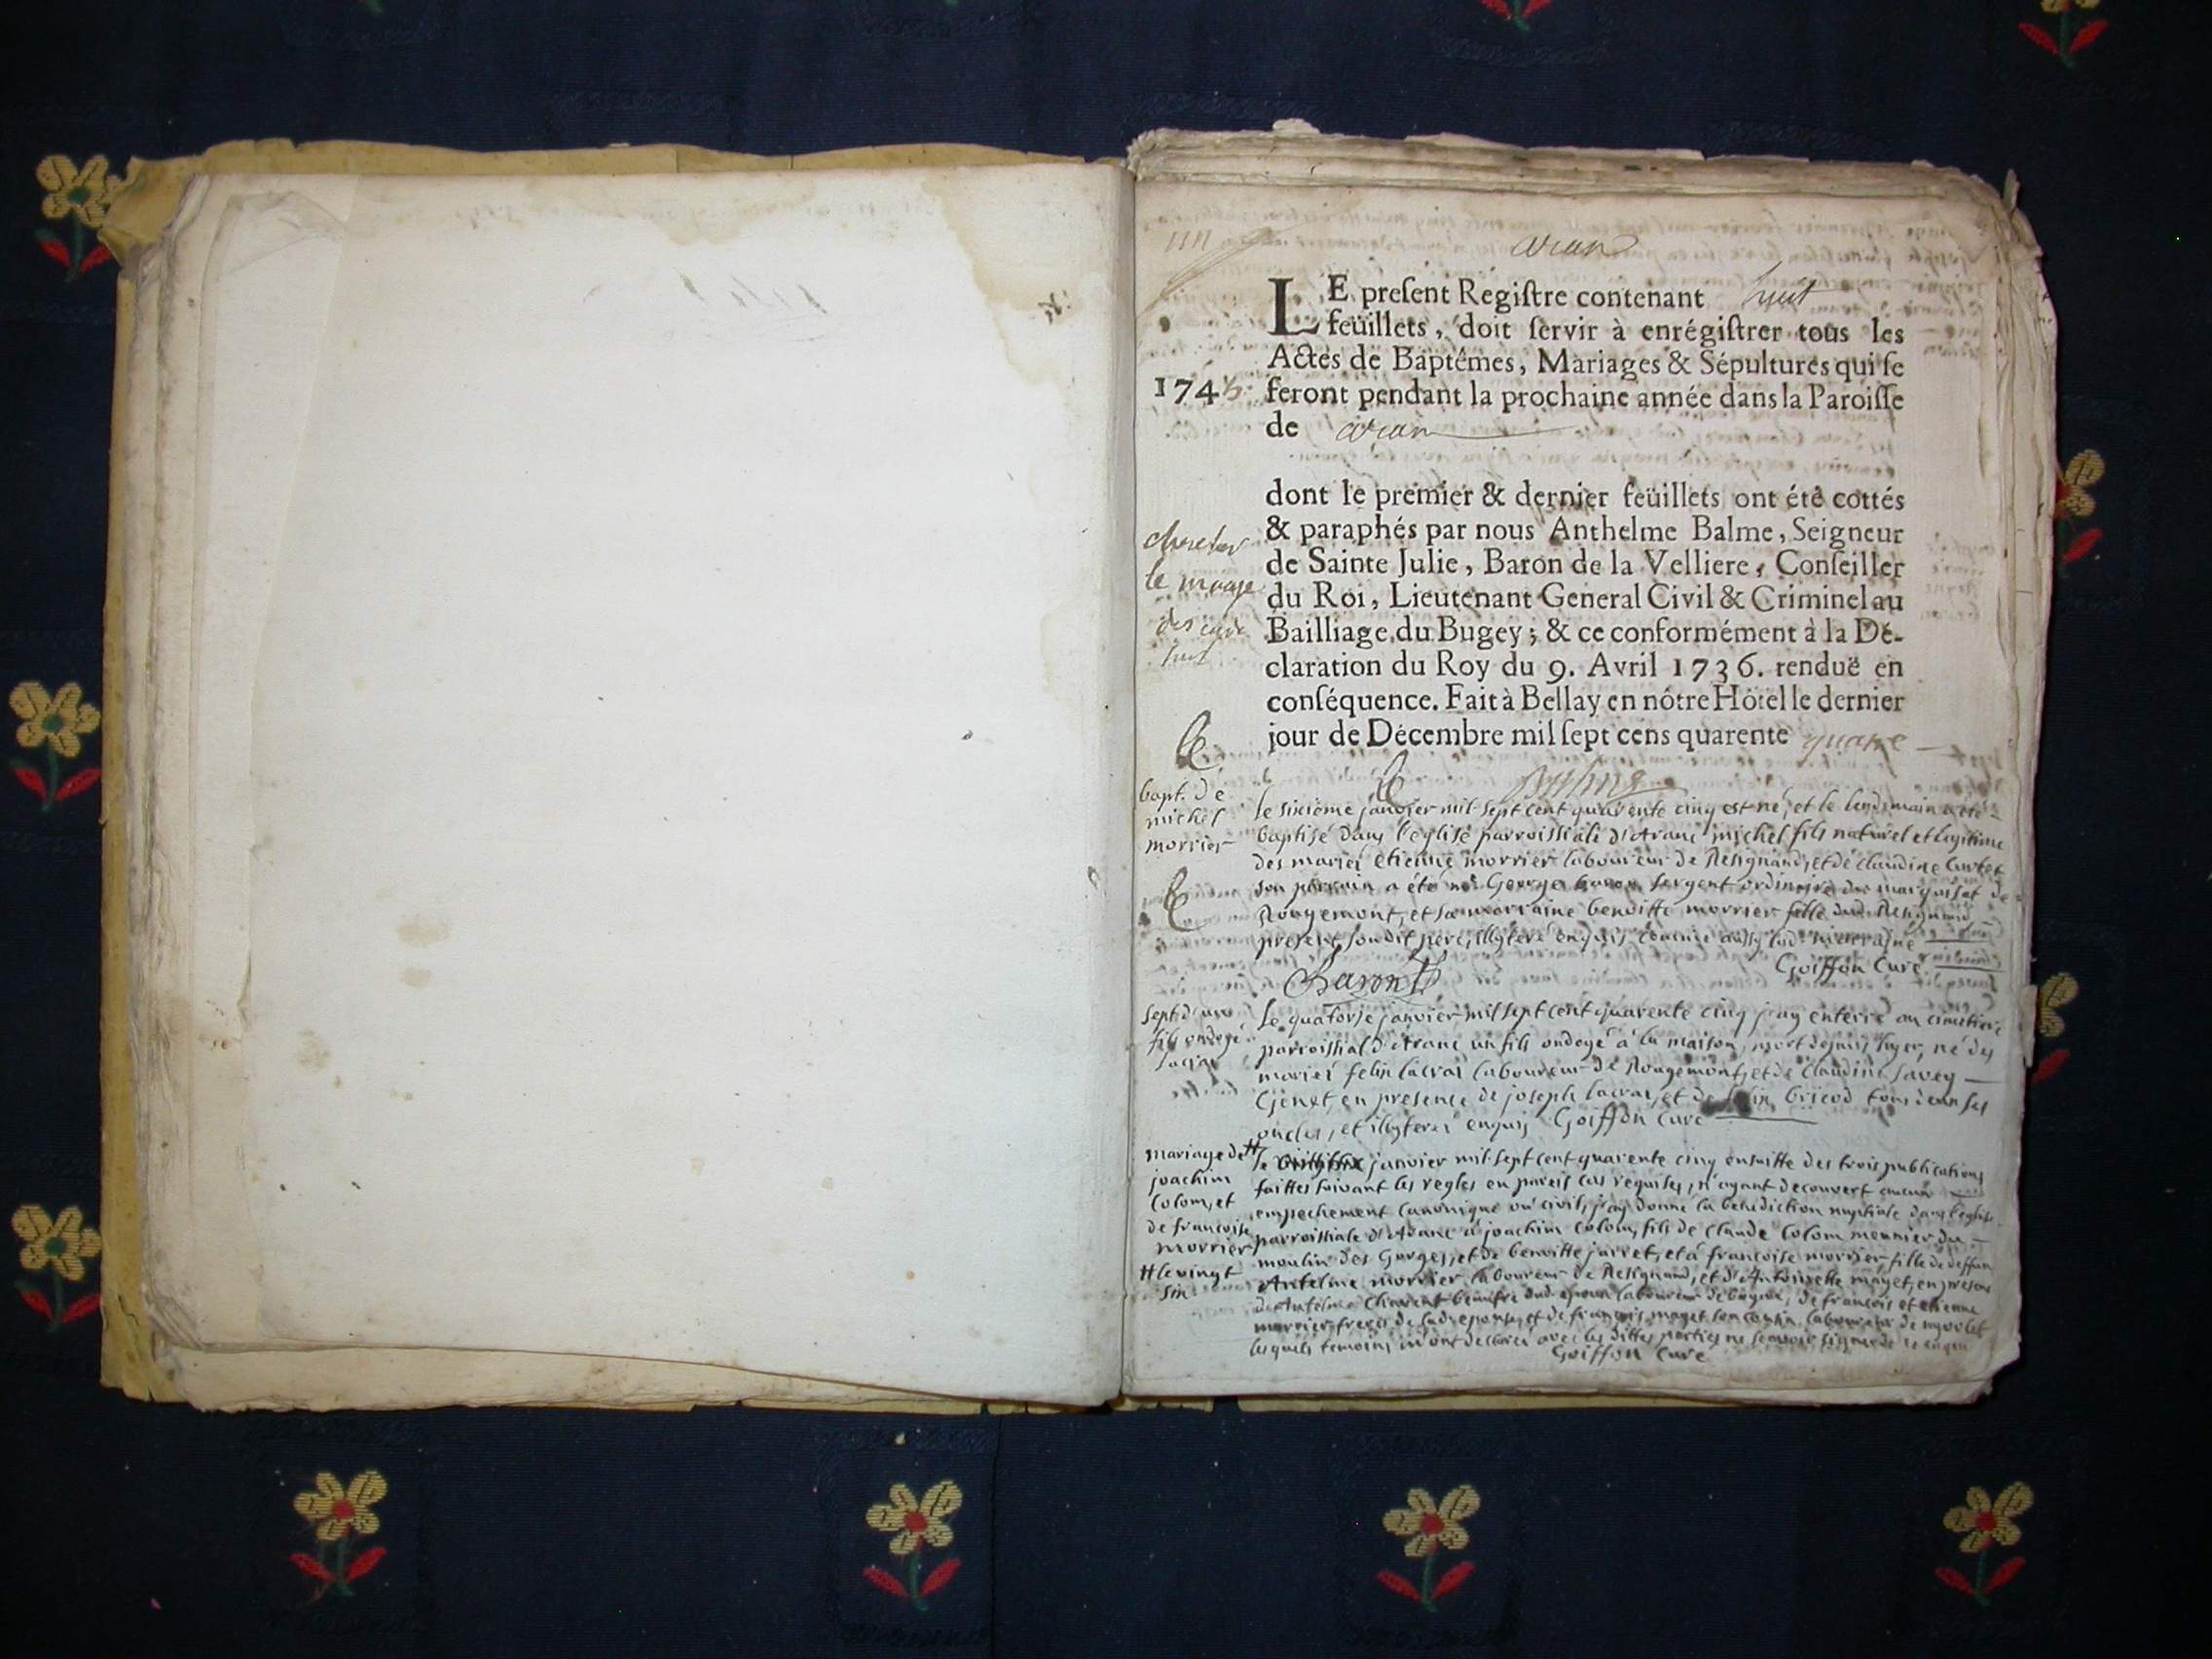 aran
LE preſent Regiſtre contenant huit
feüillets, doit ſervir à enrégiſtrer tous les
Actes de Baptêmes, Mariages & Sépultures qui ſe
1745 feront pendant la prochaine année dans la Paroiſſe
de aran
dont le premier & dernier feüillets ont été cottés
& paraphés par nous Anthelme Balme, Seigneur
de Sainte Julie, Baron de la Velliere, Conſeiller
du Roi, Lieutenant General Civil & Criminel au
Bailliage du Bugey; & ce conformément à la Dé-
claration du Roy du 9. Avril 1736. renduë en
conſéquence. Fait à Bellay en nôtre Hôtel le dernier
jour de Décembre mil ſept cens quarente quatre
bapt. de
michel
morrier
le sixieme janvier mil sept cent quarente cinq est né, et le lendemain a été
baptisé dans l'eglise parroissiale d'Aranc michel fils naturel et legitime
des mariés etienne morrier laboureur de Resignand, et de claudine
son parrain a été George baron sergent ordinaire du marquisat de
Rougemont, et sa marraine benoitte morrier fille dud. Resignand
present soudit pere, illyteré enquis comme aussy lad. marraine
Baron
Goiffon Curé
sept. d'un
fils ondoyé
lacrai
Le quatorze janvier mil sept cent quarente cinq j'ay enterré au cimetiere
parroissial d'Aranc un fils ondoyé à la maison, mort depuis hyer, né des
mariés felix lacrai laboureur de Rougemont, et de Claudine savey
Genet, en presence de joseph lacrai, et de bricod tous deux ses
oncles, et illyterés enquis Goiffon Curé
mariage de
joachim
Colom, et
de francoise
morrier
# le vingt
six
# le janvier mil sept cent quarente cinq ensuitte des trois publications
faittes suivant les regles en pareil cas requises, n'ayant decouvert aucun
empechement canonique ou civil, j'ay donné la benediction nuptiale dans l'eglise
parroissiale d'Aranc à joachim Colom, fils de Claude Colom meunier du
moulin des Gorges, et de benoitte jarret, et à francoise morrier, fille de deffun
Antelme morrier laboureur de Resignand, et d'Antoinette maget, en presence
d'Antelme laboureur de de françois et etienne
morrier freres de lad. epouse, et de françois maget son cousin laboureur de
lesquels temoins m'ont declaré avec les dittes parties ne sçavoir signer de ce enquis
Goiffon Curé